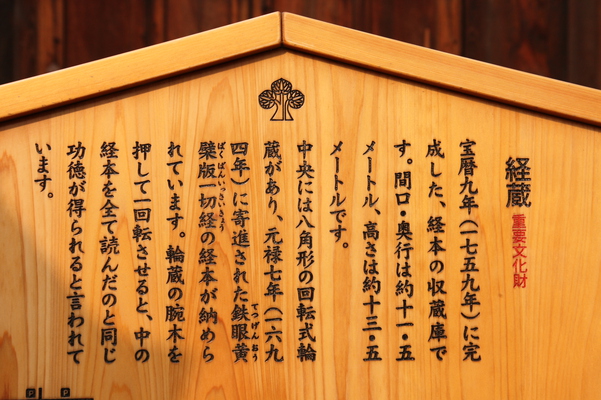 経蔵 重要文化財
宝暦九年(一七五九年)に完
成した、経本の収蔵庫で
す。間口・奥行は約十一・五
メートル、高さは約十三・五
メートルです。
中央には八角形の回転式輪
蔵があり、元禄七年(一六九
四年)に寄進された鉄眼黄
てつげんおう
檗版一切経の経本が納めら
ばくばんいっさいきょう
れています。輪蔵の腕木を
押して一回転させると、中の
経本を全て読んだのと同じ
功徳が得られると言われて
います。
P P